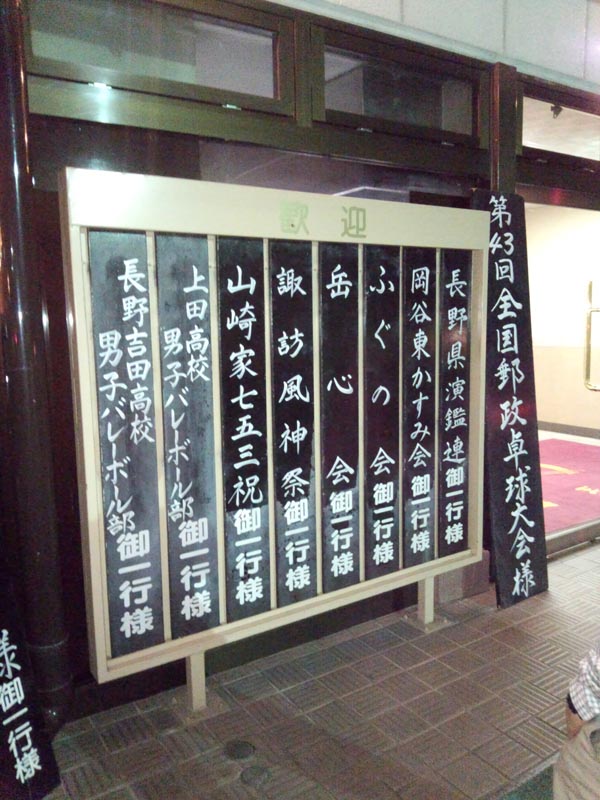 歓迎
第43回全国郵政卓球大会様
長野県演鑑連御一行様
岡谷東かすみ会御一行様
ふぐの会御一行様
岳心会御一行様
諏訪風神祭御一行様
山崎家七五三祝御一行様
上田高校
男子バレーボール部御一行様
長野吉田高校
男子バレーボール部御一行様
様御一行様